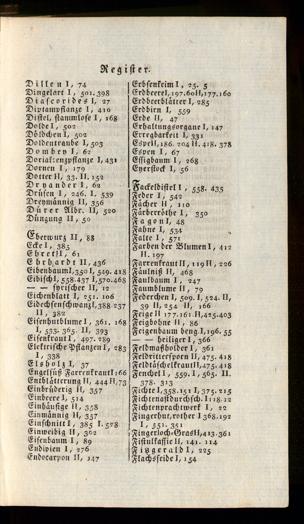 Register.
Dillen I, 74
Dingelart I, 501. 398
Diascorides I, 27
Diptampflanze I, 410
Distel, stammlose I, 168
Dolde I, 502
Döldchen I, 502
Doldentraube I, 503
Dombey I, 62
Dorialkreuzpflanze I, 431
Dornen I, 179
Dotter II, 33. II. 152
Dryander I, 62
Drüsen I, 246. I. 539
Dreymännig II, 356
Dürer Albr. II, 520
Düngung II, 50
Eberwurz II, 88
Ecke I, 385
Ehret I, 61
Ehrhardt II, 436
Eibenbaum I, 350 I, 549. 418
Eibisch I, 558. 437 I, 570. 468
— — syrischer II, 12
Eichenblatt I, 251. 106
Eidechsenschwanz I, 388. 237
II, 382
Eisenhutblume I, 361. 168
I, 533. 365. II. 393
Eisenkraut I, 497. 289
Elektrische Pflanzen I, 283
I, 338
Elsholz I, 37
Engelsüß Farrenkraut I 66
Entblätterung II, 444 II, 73
Einbrüderig II, 357
Einbeere I, 514
Einhäusige II, 358
Einmännig II, 357
Einschnitt I, 385 I. 528
Einweibig II, 362
Eisenbaum I, 89
Endivien I, 276
Endocarpon II, 147
Erbsenkeim I, 25. 5
Erdbeere I, 197. 60 II, 177. 160
Erdbeerblätter I, 285
Erdbien I, 559
Erde II, 47
Erhaltungsorgane I, 147
Erregbarkeit I, 331
Espen I, 67
Essigbaum I, 268
Eyerstock I, 56
Fackeldistel I, 558. 435
Feder I, 542
Fächer II, 110
Färberröthe I, 350
Fagen I, 48
Fahne I, 534
Falte I, 571
Farben der Blumen I, 412
II. 197
Farrenkraut II, 119 II, 226
Fäulniß II, 468
Faulbaum I, 247
Faumblume II, 79
Federchen I, 509. I, 524. II,
39 II. 254 II, 166
Feige II 177. 161. II, 425. 403
Feigbohne II, 86
Feigenbaum beng I, 196. 55
— — heiliger I, 366
Feldmaßholder I, 361
Feldrittersporn II, 475. 418
Feldtäschelkraut II, 475. 418
Fenchel I, 559. I, 565. II.
378. 313
Fichte I, 358. 151 I, 375. 215
Fichtenastdurchsch. I 118. 12
Fichtenprachtwerk I, 22
Fingerhut, rother I 368. 192
I, 551. 351
Fingerloch-Gras II, 413. 361
Fistulkaffie II, 141. 114
Fitzgerald I, 225
Flachsseide I, 154